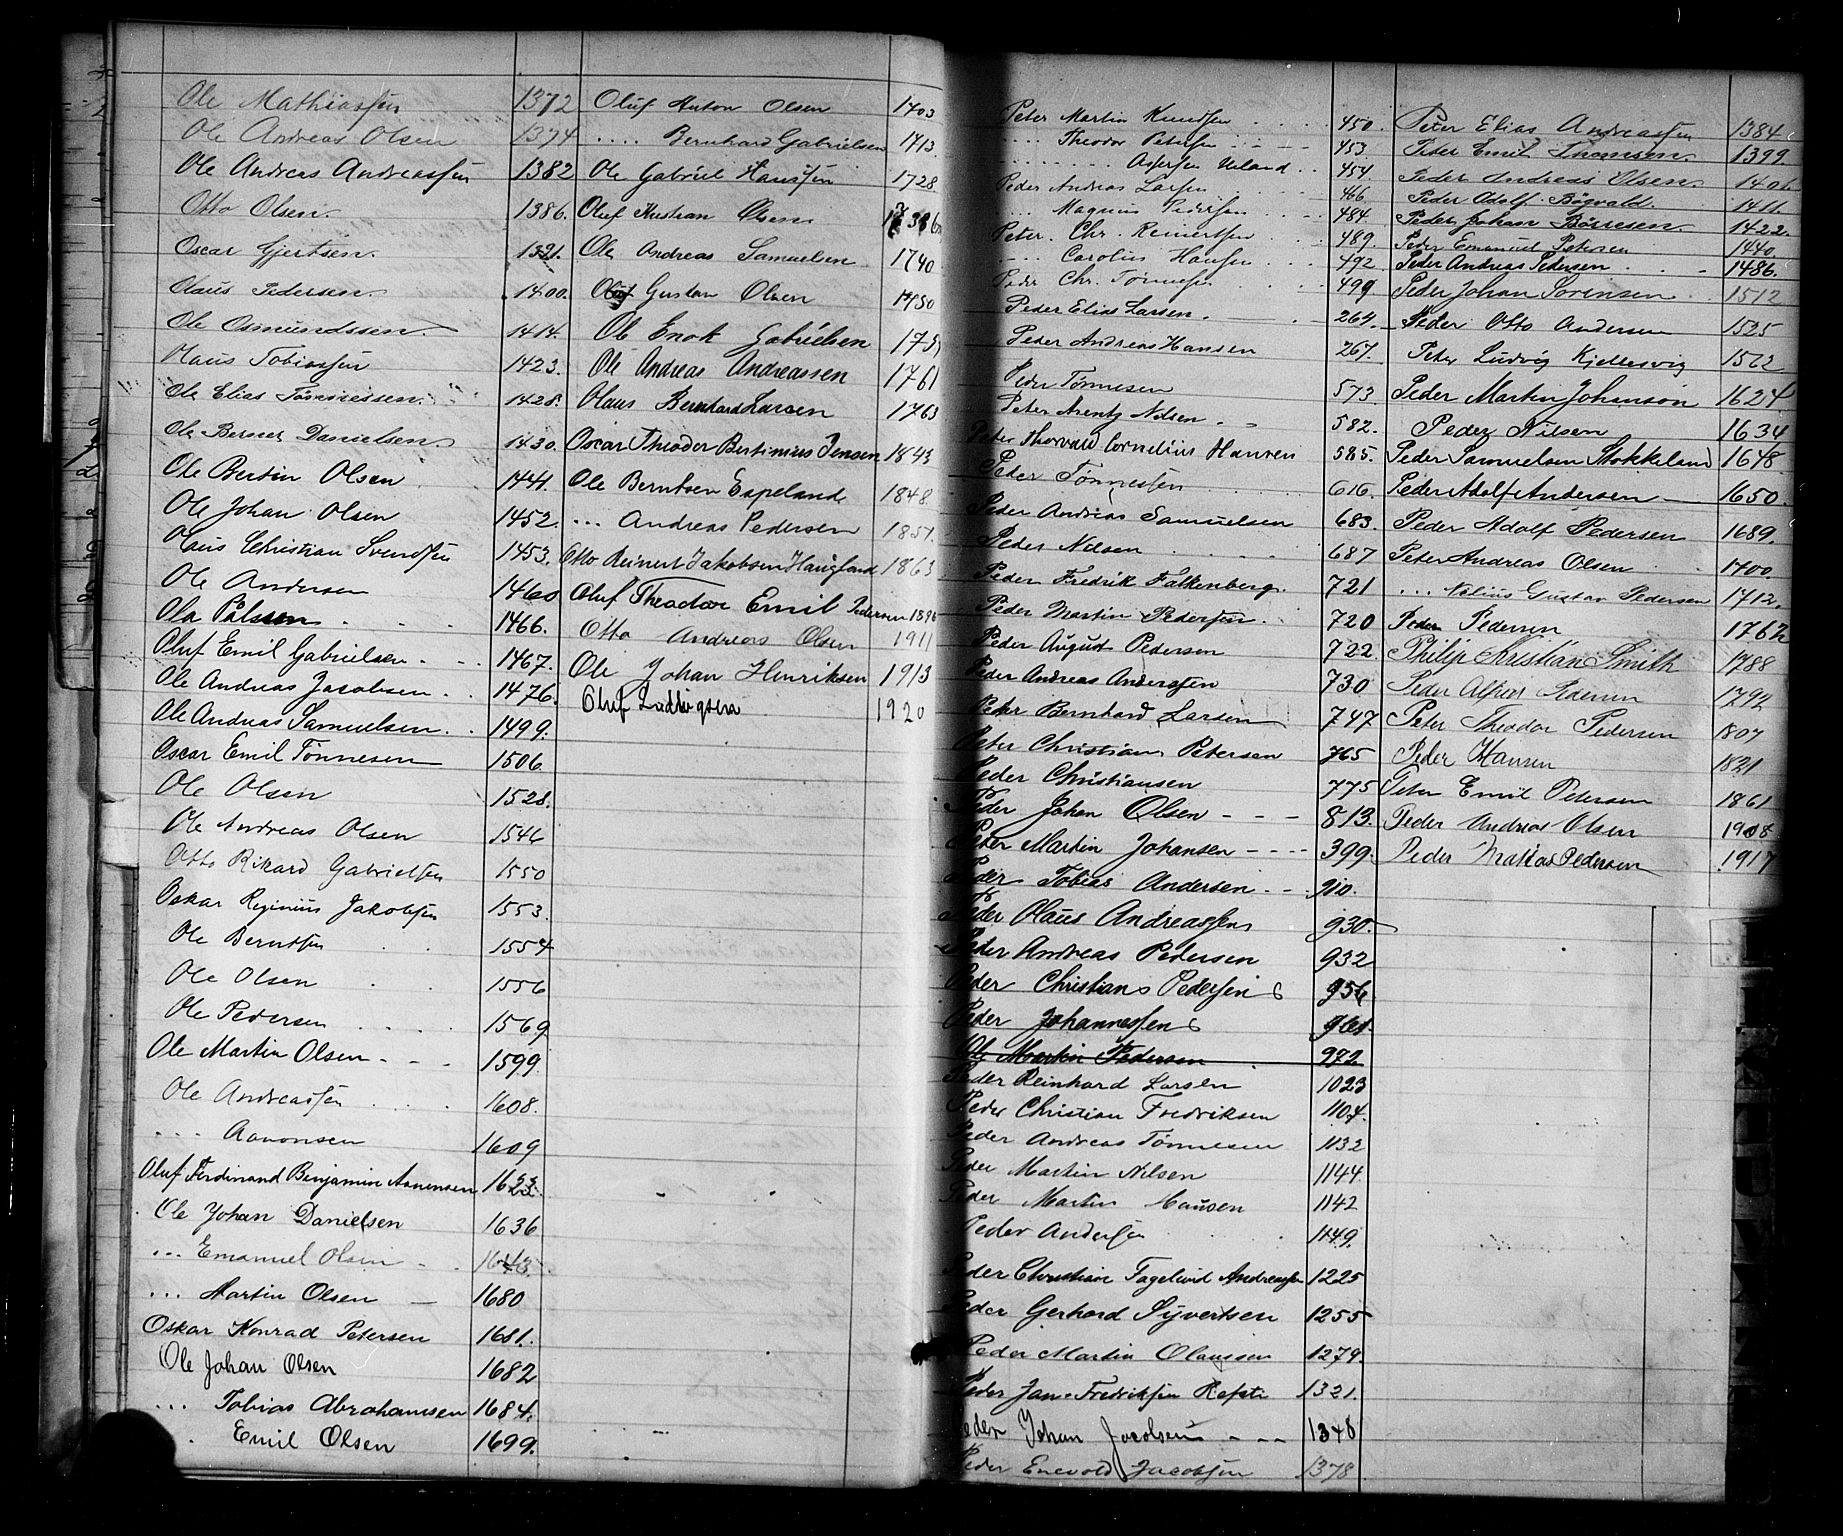 Ole Mathiassen 1372
Ole Andreas Olsen 1374
Ole Andreas Andreassen 1382
Otto Olsen. 1386.
Oscar Gjertsen. 1391.
Olaus Pedersen. 1400.
Ole Osmundssen. 1414.
Olaus Tobiassen 1423.
Ole Elias Tönnessen. 1428.
Ole Berner Danielsen 1430.
Ole Bertin Olsen 1444.
Ole Johan Olsen 1452.
Olaus Christian Svendsen 1453.
Ole Andersen 1460
Ola Pålssen 1466.
Oluf Emil Gabrielsen. 1467.
Ole Andreas Jacobsen. 1476.
Ole Andreas Samuelsen. 1499.
Oscar Emil Tönnesen 1506.
Ole Olsen 1528.
Ole Andreas Olsen 1546
Otto Rikard Gabrielsen 1550
Oskar Reginius Jakobsen 1553.
Ole Berntsen 1554
Ole Olsen 1556
Ole Pedersen 1569
Ole Martin Olsen - - 1599.
Ole Andreassen 1608.
... Aanonsen 1609
Oluf Ferdinand Benjamin Aanensen 1623.
Ole Johan Danielsen 1636
... Emanuel Olsen 1643.
... Martin Olsen — 1680
Oskar Konrad Petersen 1681.
Ole Johan Olsen 1682
... Tobias Abrahamsen 1684.
. Emil Olsen 1699.
Oluf Anton Olsen 1703
.... Bernhard Gabrielsen 1713.
Ole Gabriel Hanssen 1728.
Oluf Kristian Olsen
Ole Andreas Samuelsen 1740
Oluf Gustav Olsen 1750
Ole Enok Gabrielsen
Ole Andreas Andreassen 1761
Olaus Bernhard Larsen 1763
Oscar Theodor Bertinius Jensen 1843
Ole Berntsen Espelande 1848.
... Andreas Pedersen 1851.
Otto Reinert Jakobsen Haugland 1863
Oluf Theodor Emil Pedersen 1896
Otto Andreas Olsen 1911
Ole Johan Henriksen 1913
Oluf Ludvigsen 1920
Peter Martin Knudsen 450.
.... Theodor Petersen 453.
........ Aspersen Ueland 454.
Peder Andreas Larsen 466
... Magnus Pedersen 484.
Peter. Chr. Reinertsen 489.
... Carolius Hansen 492.
Peder Chr. Tönnesen 499
Peder Elias Larsen. 264.
Peder Andreas Hansen 267.
Peder Tönnesen 573
Peter Arentz Nilsen. 582.
Peter Thorvald Cornelius Hansen 585.
Peder Tönnessen 616.
Peder Andreas Samuelsen 683.
Peder Nilsen 687
Peder Fredrik Falkenberg. 721
Peder Martin Pedersen. 720
Peder August Pedersen 722.
Peder Andreas Anderssen 730
Peter Bernhard Larsen 747
Peter Christian Petersen 765
Peder Christiansen 775
Peder Johan Olsen - - - 813.
Peter Martin Johansen - - - - 399.
Peder Tobias Andersen. - - 910.
Peder Olaus Andreassen 930.
Peder Andreas Pedersen 932
Peder Christians Pedersen 956
Peder Johannessen 961.
Ole Martin Pedersen 972
Peder Reinhard Larsen 1023
Peder Christian Fredriksen 1104.
Peder Andreas Tönnesen 1132
Peder Martin Nilsen 1144.
Peder Martin Hansen 1142
Peder Andersen 1149.
Peder Christian Fagelund Andreassen 1225
Peder Gerhard Syvertsen 1255
Peder Martin Olaussen 1279.
Peder Jan Fredriksen Refsti 1321.
Peder Johan Jacobsen - - - 1348
Peder Enevold Jacobsen 1378
Peter Elias Andreassen 1384
Peder Emil Thomsen. 1399.
Peder Andreas Olsen. 1406
Peder Adolf Bögvald. 1411.
Peder Johan Börresen. 1422.
Peder Emanuel Petersen 1440.
Peder Andreas Pedersen 1486.
Peder Johan Sörensen 1512
Peder Otto Andersen 1525
Peter Ludvig Kjellesvig 1562
Peder Martin Johanson 1624
Peder Nilsen 1634
Peder Samuelsen Stokkeland 1648
Peder Adolf Andersen 1650.
Peder Adolf Pedersen 1689.
Peter Andreas Olsen 1700.
... Nilius Gustav Pedersen 1712.
Peder Pedersen 1762
Philip Kristian Smith 1788
Peder Alfred Pedersen 1792
Peter Theodor Pedersen 1807
Peder Hansen 1821
Peter Emil Petersen 1861
Peder Andreas Olsen 1908
Peder Mattias Pedersen 1917